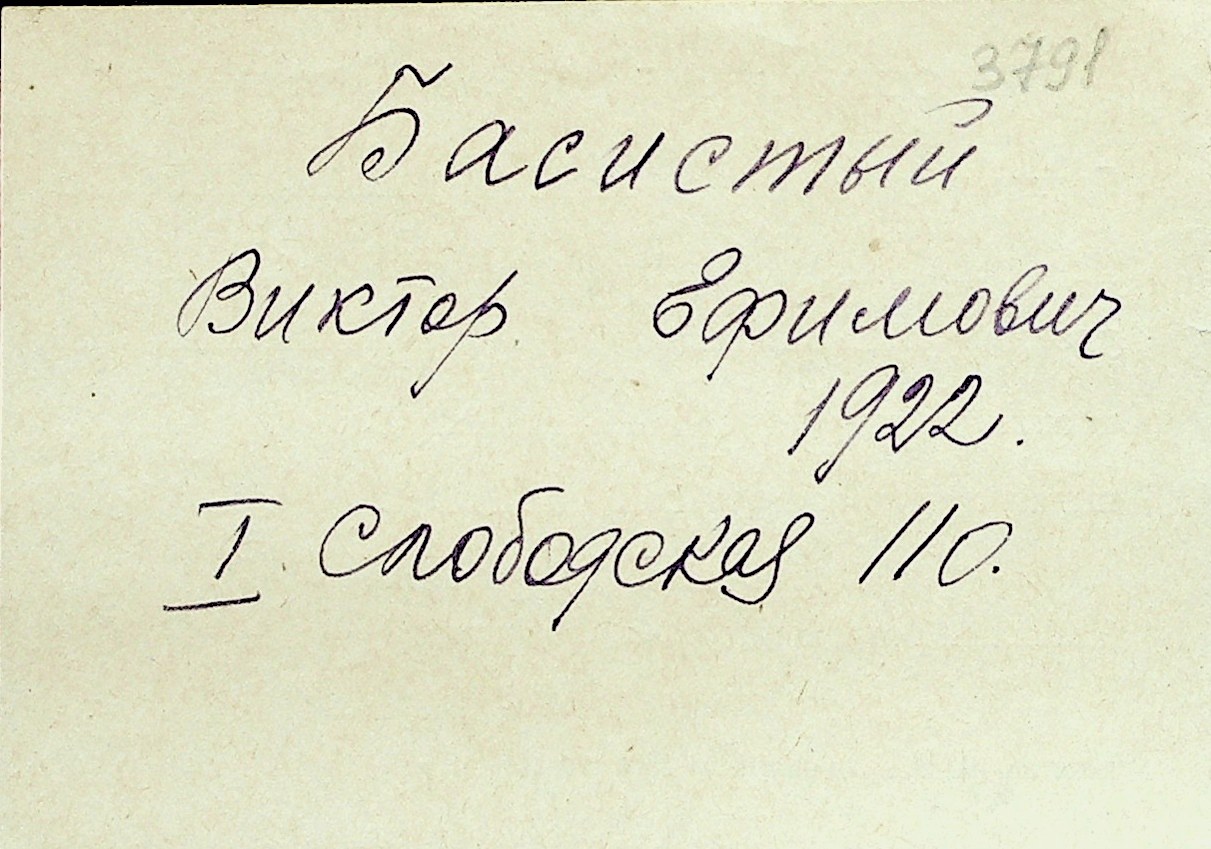 3791
Басистый
Виктор Ефимович
1922.
I Слободская 110.